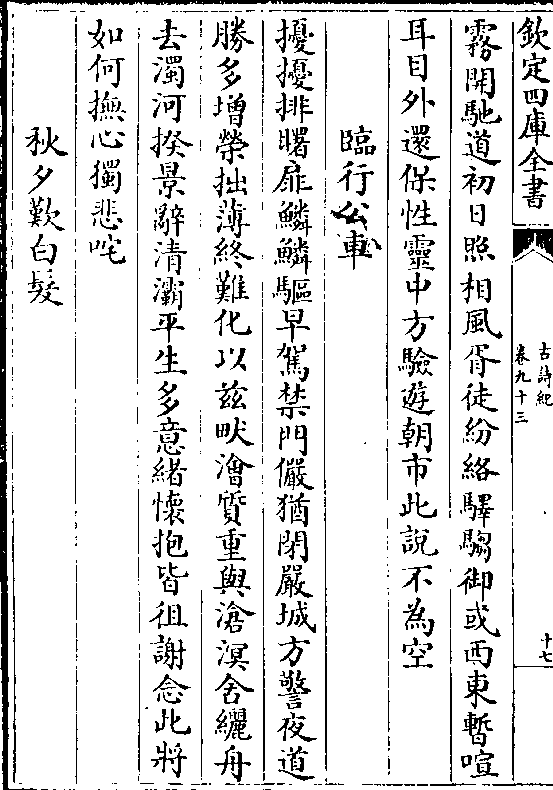 欽定四庫全書
古詩紀
卷九十三
十七
霧開馳道初日照相風胥徒紛絡驛騶御或西東暫喧
耳目外還保性靈中方驗遊朝市此說不為空
臨行公車
擾擾排曙扉鱗鱗驅早駕禁門儼猶閉嚴城方警夜道
勝多增榮拙薄終難化以茲畎澮質重與滄溟舍纚舟
去濁河揆景辭清灞平生多意緒懷抱皆徂謝念此將
如何撫心獨悲咤
秋夕歎白髮